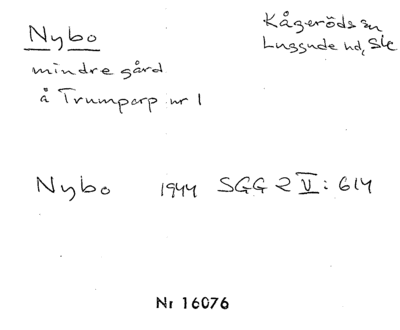 Nybo
Kågeröds sn
Luggude hd, Sk
mindre gård
å Trumparp nr 1
Nybo 1944 SGG 2 V: 614
Nr 16076